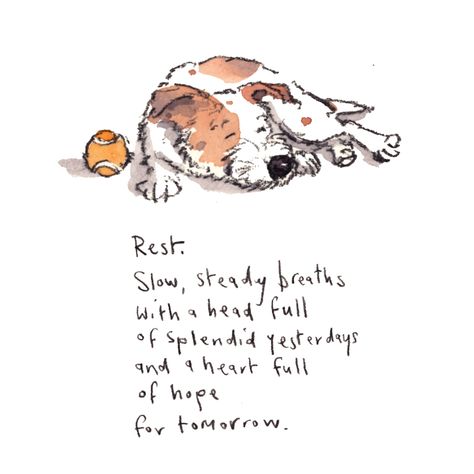 Rest.
Slow, steady breaths
with a head full
of splendid yesterdays
and a heart full
of hope
for tomorrow.